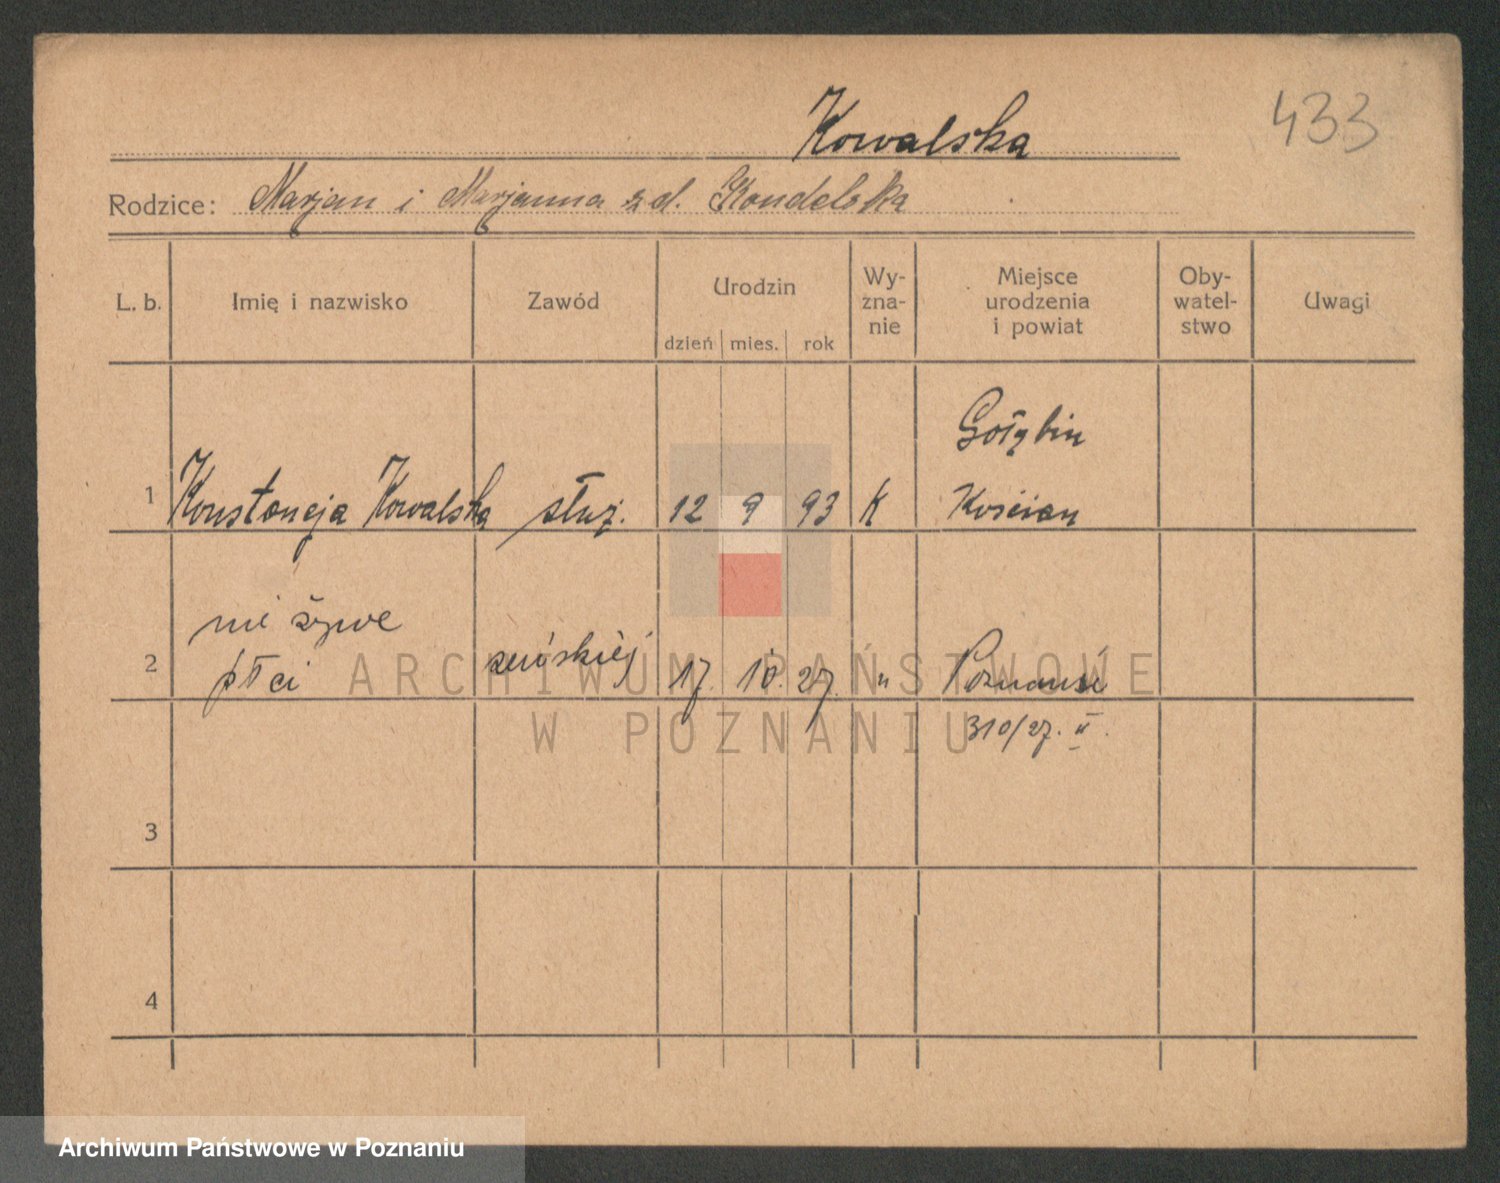 Kowalska
433
Rodzice: Marjan i Marjanna zd. Kondelska
L. b. Imię i nazwisko Zawód Urodzin Wy- Miejsce Oby- Uwagi
zna- urodzenia watel-
dzień mies. rok nie i powiat stwo
Gołębin
1 Konstancja Kowalska służ. 12 9 93 K Kościan
nie żywe
2 płci żeńskiej 17. 10. 27. " Poznań
310/27. II.
3
4
ARCHIWUM PAŃSTWOWE
W POZNANIU
Archiwum Państwowe w Poznaniu